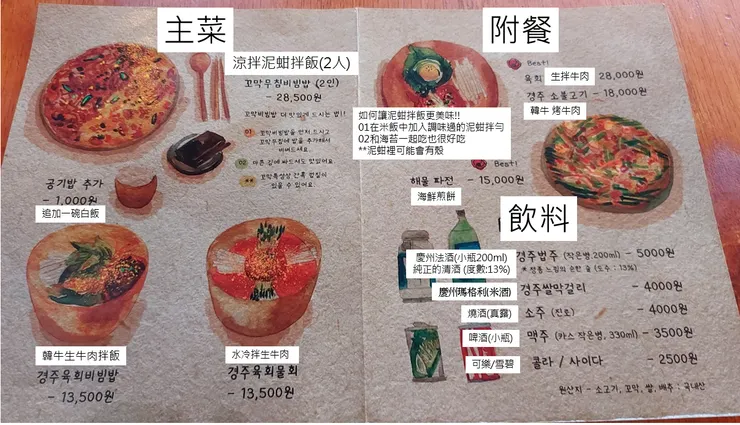 主菜
涼拌泥蚶拌飯(2人)
꼬막무침비빔밥 (2인)
- 28,500원
꼬막비빔밥 더 맛있게 드시는 법!!
01 꼬막비빔밥을 먼저 드시고
꼬막무침에 밥을 추가해서
비벼드세요.
02 마른 김에 싸드셔도 맛있어요.
** 꼬막특성상 간혹 껍질이
있을 수 있어요.
공기밥 추가
- 1,000원
追加一碗白飯
韓牛生牛肉拌飯
경주육회비빔밥
- 13,500원
水冷拌生牛肉
경주육회물회
- 13,500원
附餐
Best!
육회
生拌牛肉
28,000원
경주 소불고기 - 18,000원
韓牛 烤牛肉
如何讓泥蚶拌飯更美味!!
01在米飯中加入調味過的泥蚶拌勻
02和海苔一起吃也很好吃
**泥蚶裡可能會有殼
Best!
해물 파전 - 15,000원
海鮮煎餅
飲料
慶州法酒(小瓶200ml)
純正的清酒 (度數:13%)
경주법주 (작은병,200ml) - 5000원
* 정통 느낌의 순한 술 (도수 : 13%)
慶州瑪格利(米酒)
경주쌀막걸리 - 4000원
燒酒(真露)
소주 (진로) - 4000원
啤酒(小瓶)
맥주 (카스 작은병, 330ml) - 3500원
可樂/雪碧
콜라 / 사이다 - 2500원
원산지 - 소고기, 꼬막, 쌀, 배추 : 국내산